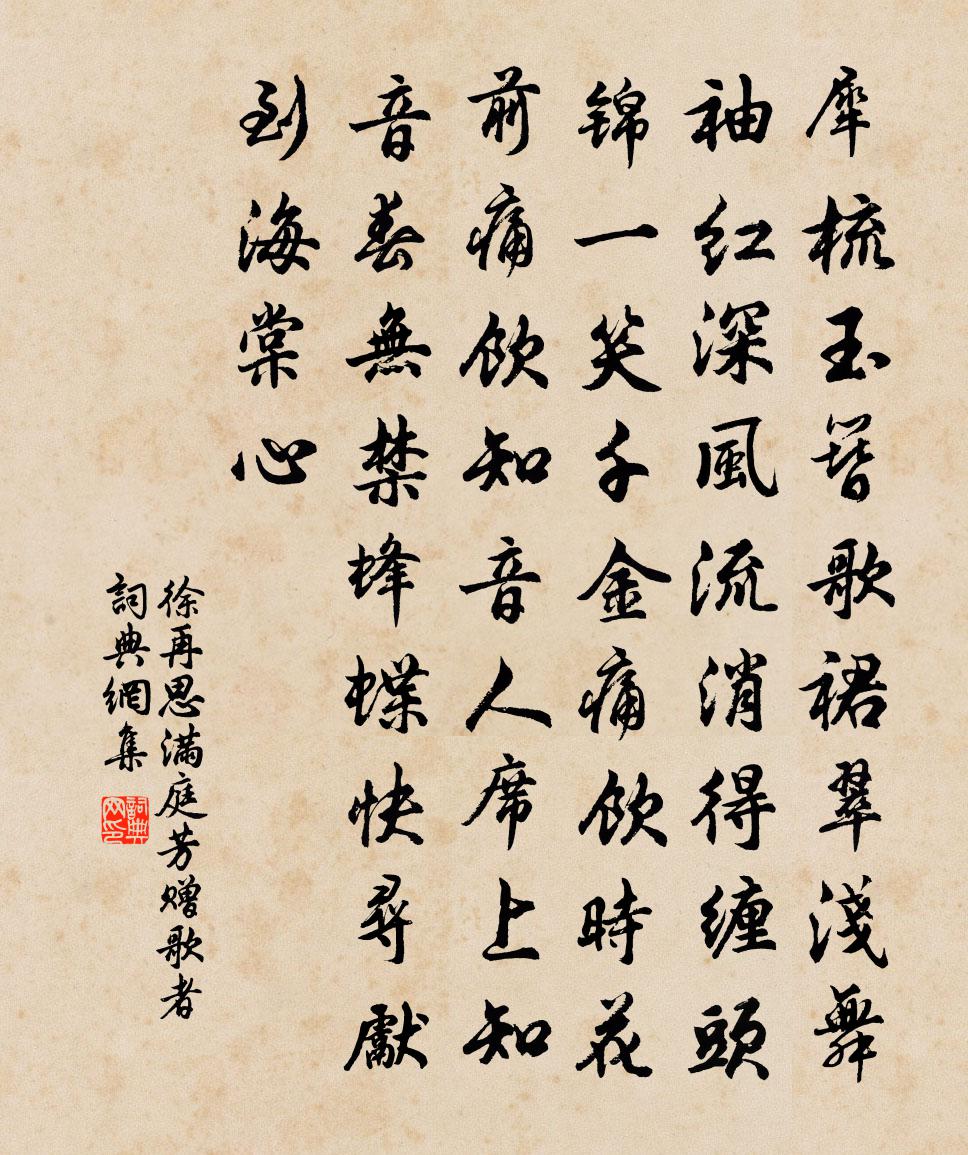 犀梳玉簪歌裙翠淺舞
袖红深風流消得缠頭
锦一笑千金痛饮時花
前痛饮知音人席上知
音春無禁蜂蝶快尋獻
到海棠心
徐再思满庭芳赠歌者
詞典網集
詞典网印